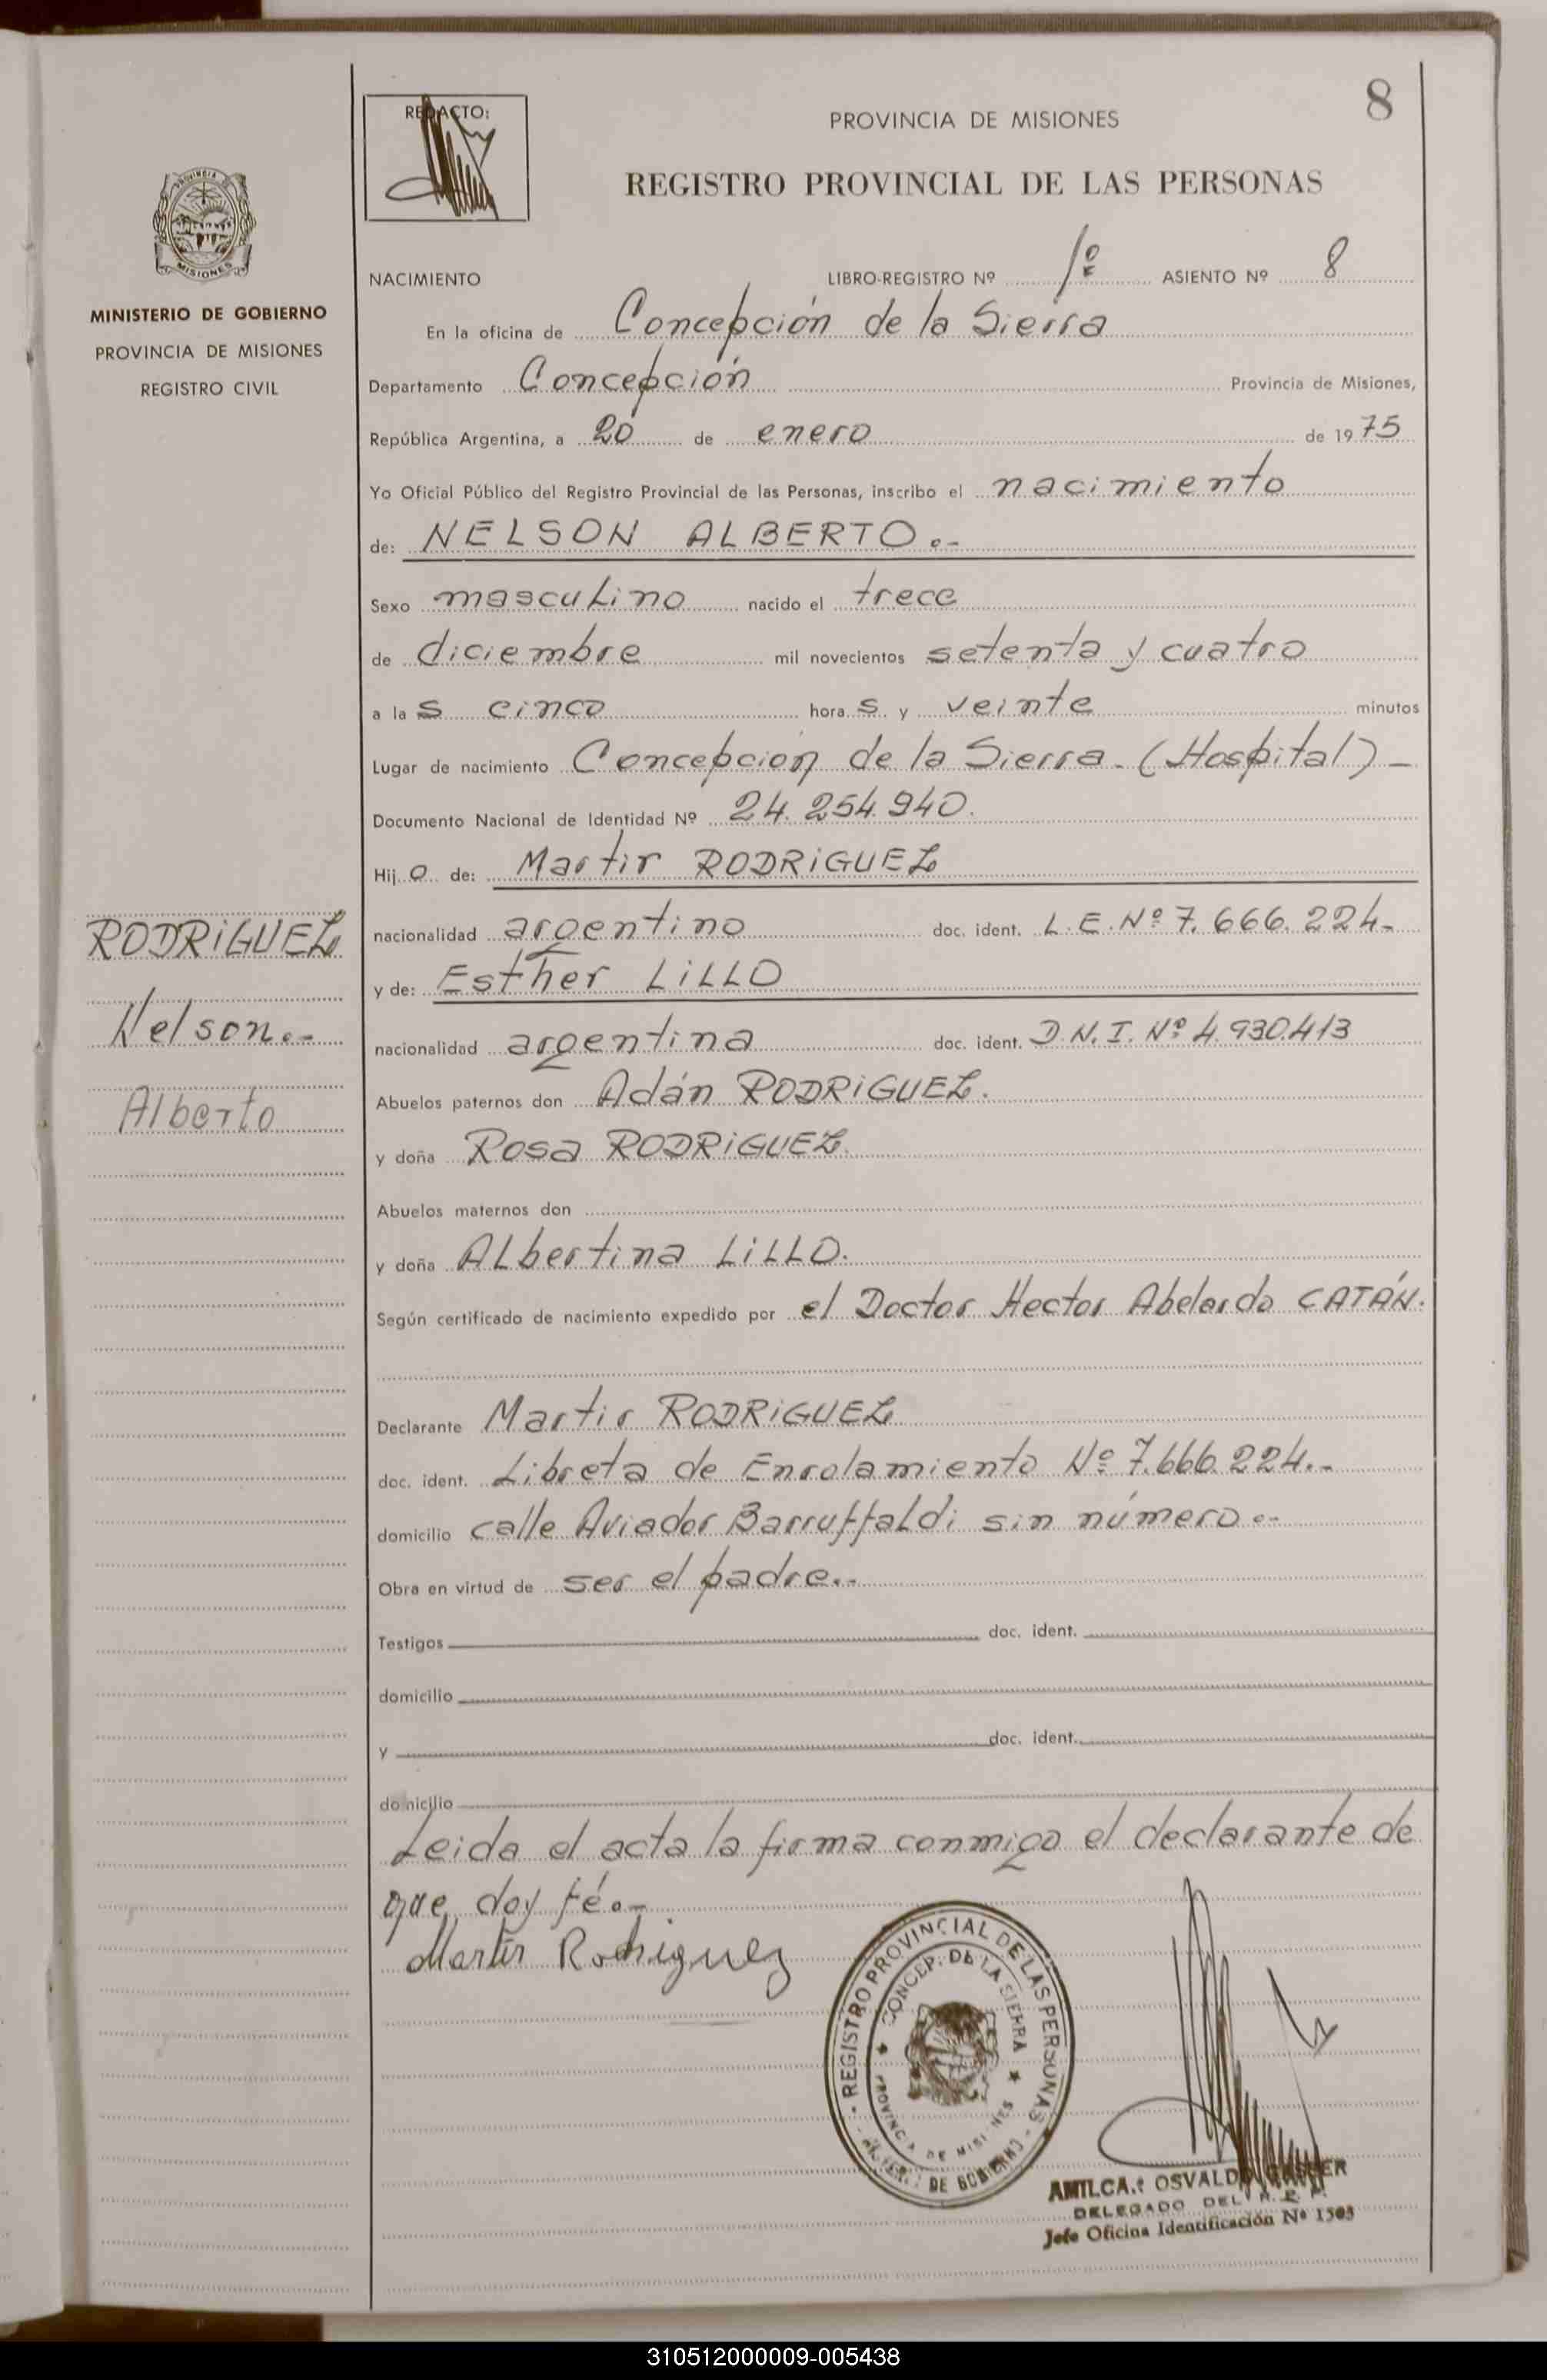 8
REDACTO:
PROVINCIA DE MISIONES
REGISTRO PROVINCIAL DE LAS PERSONAS
PROVINCIA DE
MISIONES
MINISTERIO DE GOBIERNO
PROVINCIA DE MISIONES
REGISTRO CIVIL
NACIMIENTO LIBRO-REGISTRO Nº 1º ASIENTO Nº 8
En la oficina de Concepción de la Sierra
Departamento Concepción Provincia de Misiones,
República Argentina, a 20 de enero de 1975
Yo Oficial Público del Registro Provincial de las Personas, inscribo el nacimiento
de: NELSON ALBERTO.-
Sexo masculino nacido el trece
de diciembre mil novecientos setenta y cuatro
a las cinco horas y veinte minutos
Lugar de nacimiento Concepción de la Sierra.(Hospital)-
Documento Nacional de Identidad Nº 24.254.940.
Hijo de: Martir RODRiGUEZ
nacionalidad argentino doc. ident. L.E.Nº 7.666.224-
y de: Esther LiLLO
nacionalidad argentina doc. ident. D.N.I. Nº 4.930.413
Abuelos paternos don Adán RODRiGUEZ.
y doña Rosa RODRiGUEZ.
Abuelos maternos don
y doña ALbertina LiLLO.
Según certificado de nacimiento expedido por el Doctor Hector Abelardo CATÁN.
Declarante Martir RODRiGUEZ
doc. ident. Libreta de Enrolamiento Nº 7.666.224.-
domicilio calle Aviador Barruffaldi sin número.-
Obra en virtud de ser el padre..
Testigos doc. ident.
domicilio
y doc. ident.
domicilio
Leida el acta la firma conmigo el declarante de
que doy fé.-
Martir Rodriguez
RODRiGUEZ
Nelson.-
Alberto
REGISTRO PROVINCIAL DE LAS PERSONAS
CONCEP. DE LA SIERRA
PROVINCIA DE MISIONES
DE GOBIERNO
OSVALDO
DELEGADO DEL R. P. P.
Jefe Oficina Identificación Nº 1505
310512000009-005438